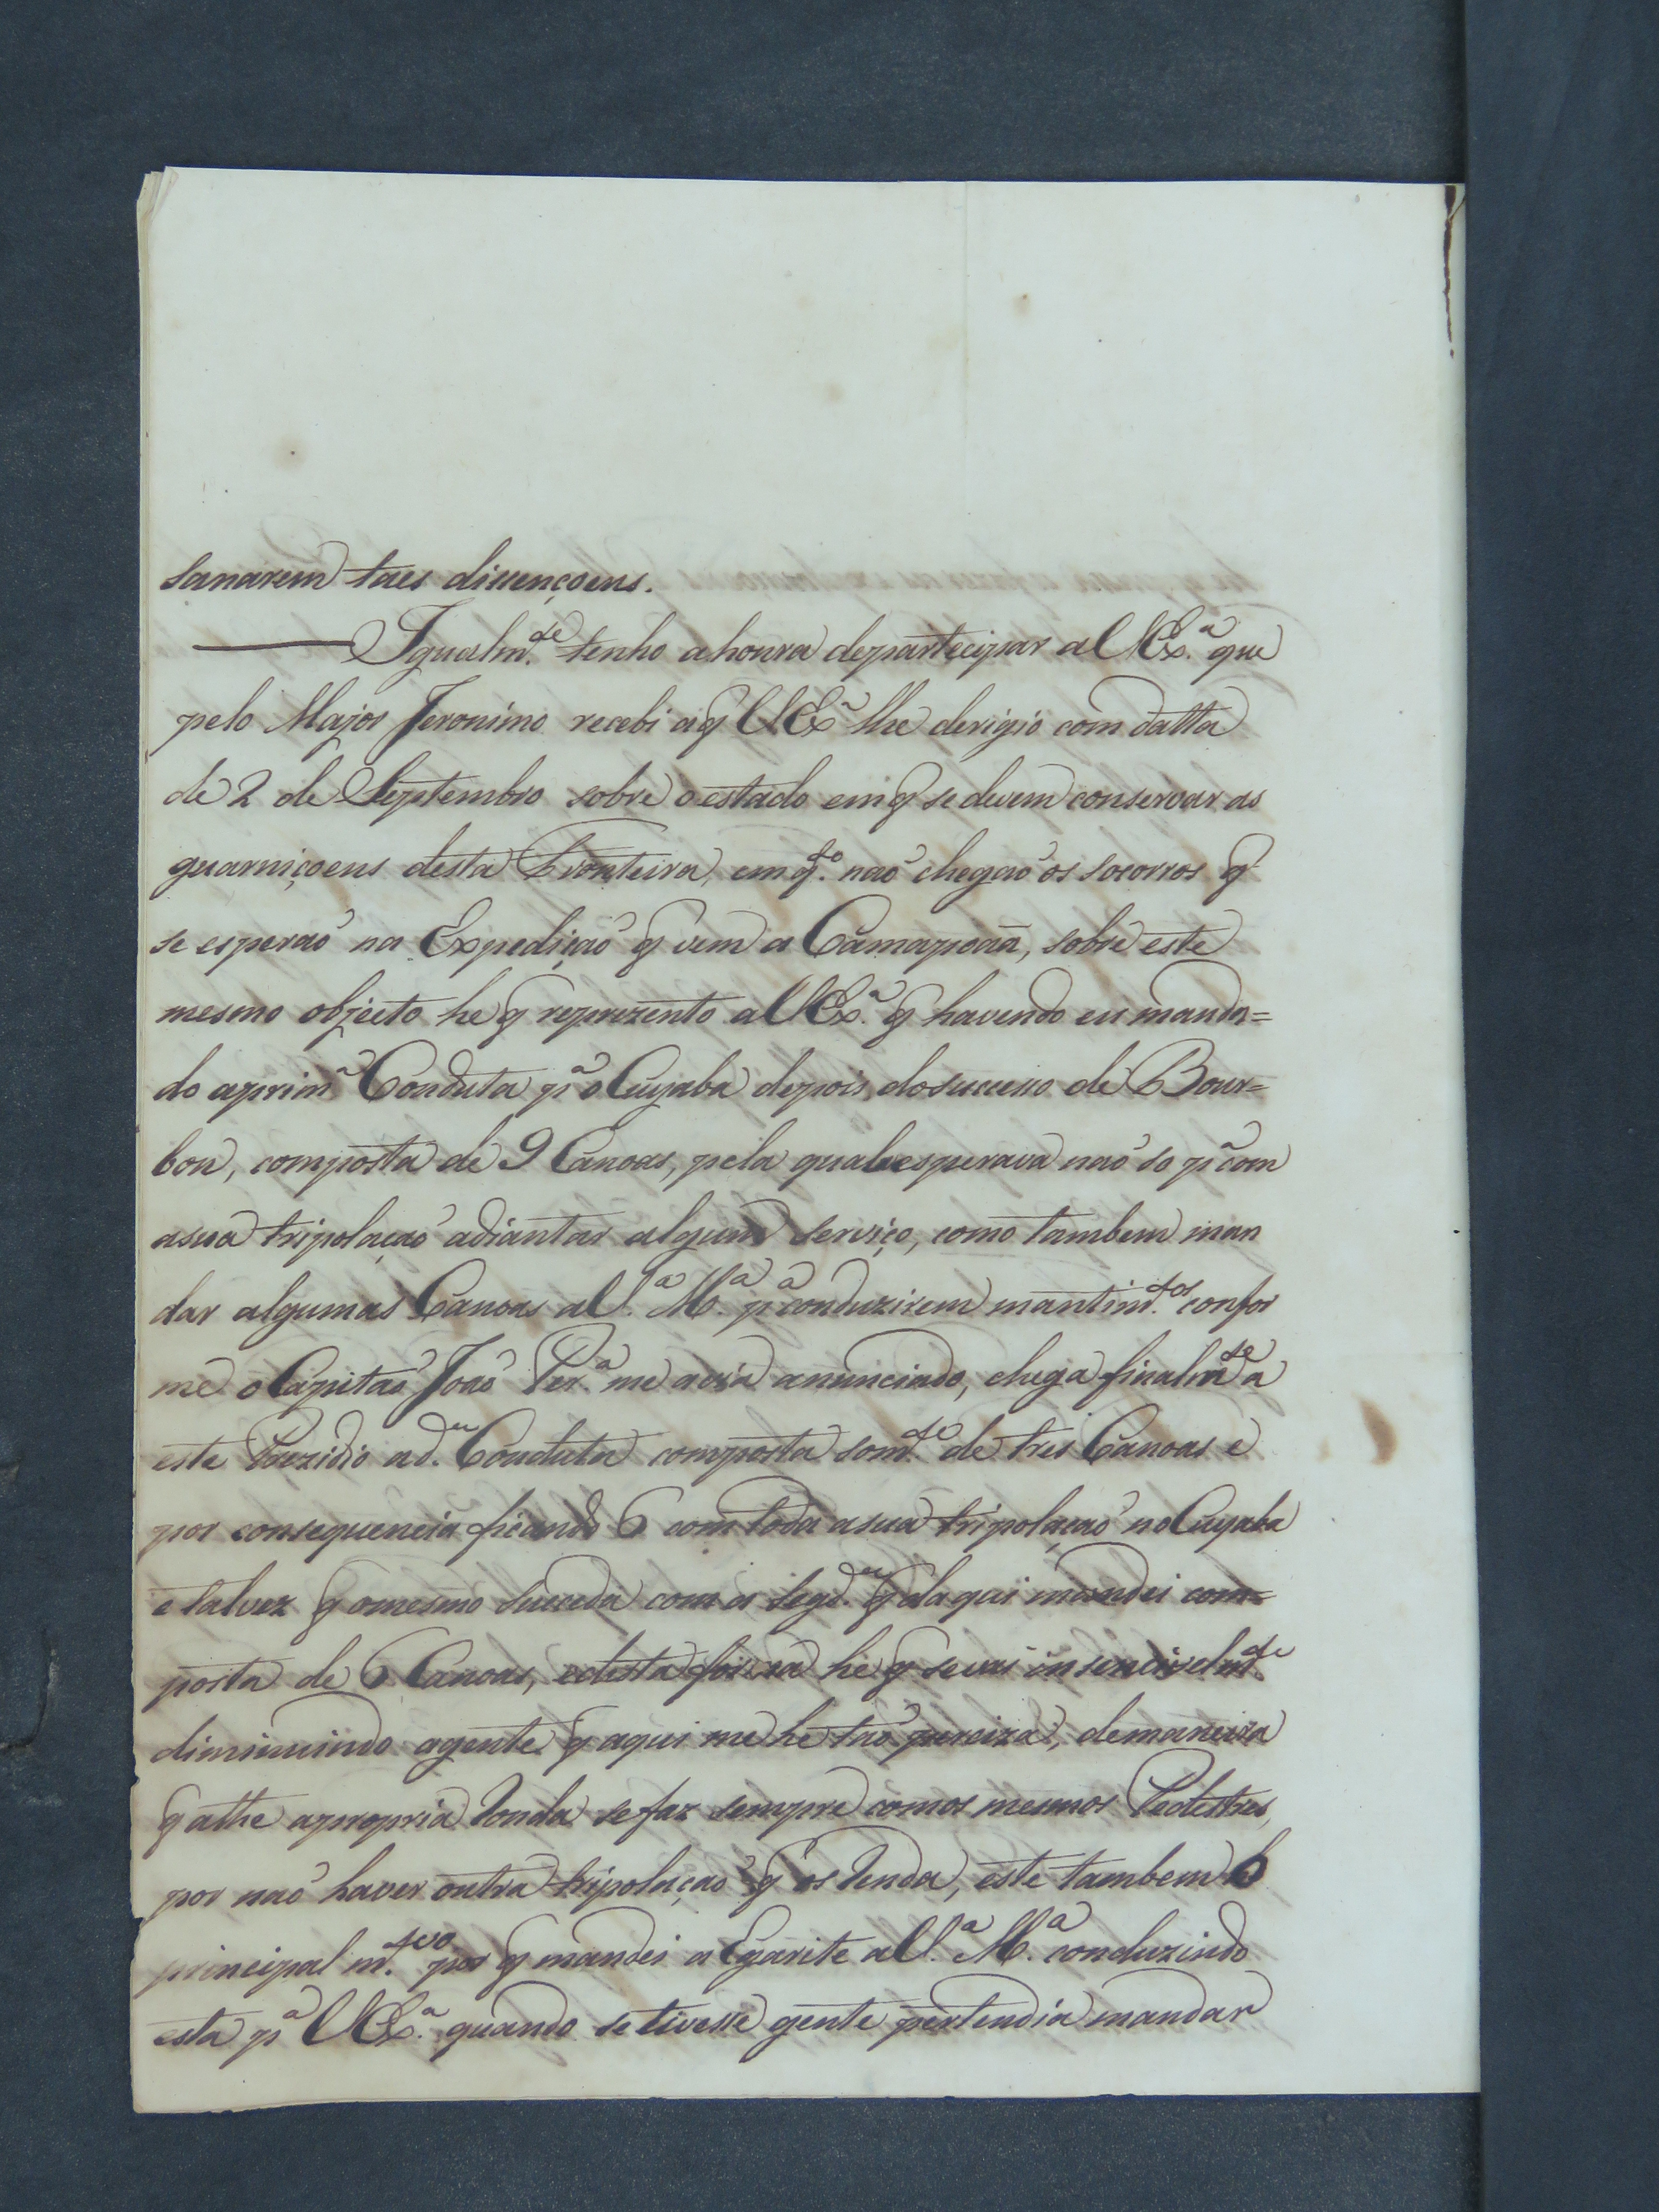 sanarem taes dissençoens.
Igualm.te tenho ahonra departecipar a V Ex.a que
pelo Major Jeronimo recebi aq V Ex.a lhe derigio com datta
de 2 de Septembro sobre oestado emq se devem conservar as
guarniçoens desta Fronteira, em q.do naõ chegaõ os socorros q
se esperaõ na Expediçaõ q vem a Camapoaã, sobre este
mesmo objecto he q reprezento a V Ex.a q havendo eu manda=
do aprim.a Conduta p.a o Cuyaba depois dosucesso de Bour=
bon, composta de 9 Canoas, pela qual esperava naõ so p.a com
asua tripolaçaõ adiantar algum serviço, como tambem man
dar algumas Canoas a V.a M.a p.a conduzirem mantim.tos confor
me o Capitaõ Joaõ Per.a me avia anunciado, chega finalm.te a
este Prezidio a d.a Conduta composta som.te de tres Canoas e
por consequencia ficando 6 com toda asua tripolaçaõ no Cuyaba
e talvez q omesmo suceda com a segd.a q daqui mandei com=
posta de 6 Canoas, edesta forma he q sevai insencivelm.te
diminuindo agente q aqui me he taõ preciza, demaneira
q athe apropria Ronda sefaz sempre comos mesmos Pedestres,
por naõ haver outra tripolaçaõ q os Renda, este tambem h
principal m.tivo por q mandei a Egarite a V.a M.a conduzindo
esta p.a V Ex.a quando setivesse gente pertendia mandar